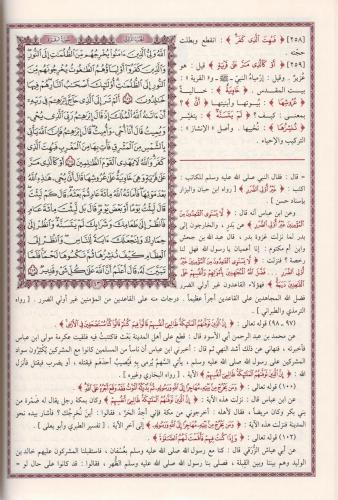 [٢٥٨] ﴿ فَبُهِتَ الَّذِي كَفَرَ ﴾ : انقطع وبطلت
حجته .
[٢٥٩] ﴿ أَوْ كَالَّذِي مَرَّ عَلَى قَرْيَةٍ ﴾ قيل : هو
عُزير . وقيل : إرمياء النبي ﷺ و « القرية » :
بيت المقدس . ﴿ خَاوِيَةٌ ﴾ : خالية
﴿ عُرُوشِهَا ﴾ : بيوتها وأبنيتها ﴿ أَنَّى ﴾ :
بمعنى : كيف ؟ ﴿ لَمْ يَتَسَنَّهْ ﴾ : يتغير
﴿ نُنْشِزُهَا ﴾ : نُحييها . وأصل «الإنشاز» :
التركيب والإحياء .
اللَّهُ وَلِيُّ الَّذِينَ آمَنُوا يُخْرِجُهُم مِّنَ الظُّلُمَاتِ إِلَى النُّورِ
وَالَّذِينَ كَفَرُوا أَوْلِيَاؤُهُمُ الطَّاغُوتُ يُخْرِجُونَهُم مِّنَ النُّورِ
إِلَى الظُّلُمَاتِ أُولَٰئِكَ أَصْحَابُ النَّارِ هُمْ فِيهَا
خَالِدُونَ ﴿٢٥٧﴾ أَلَمْ تَرَ إِلَى الَّذِي حَاجَّ إِبْرَاهِيمَ فِي رَبِّهِ
أَنْ آتَاهُ اللَّهُ الْمُلْكَ إِذْ قَالَ إِبْرَاهِيمُ رَبِّيَ الَّذِي يُحْيِي
وَيُمِيتُ قَالَ أَنَا أُحْيِي وَأُمِيتُ قَالَ إِبْرَاهِيمُ فَإِنَّ اللَّهَ يَأْتِي
بِالشَّمْسِ مِنَ الْمَشْرِقِ فَأْتِ بِهَا مِنَ الْمَغْرِبِ فَبُهِتَ الَّذِي
كَفَرَ وَاللَّهُ لَا يَهْدِي الْقَوْمَ الظَّالِمِينَ ﴿٢٥٨﴾ أَوْ كَالَّذِي مَرَّ
عَلَى قَرْيَةٍ وَهِيَ خَاوِيَةٌ عَلَى عُرُوشِهَا قَالَ أَنَّى يُحْيِي هَٰذِهِ اللَّهُ
بَعْدَ مَوْتِهَا فَأَمَاتَهُ اللَّهُ مِائَةَ عَامٍ ثُمَّ بَعَثَهُ قَالَ كَمْ لَبِثْتَ
قَالَ لَبِثْتُ يَوْمًا أَوْ بَعْضَ يَوْمٍ قَالَ بَل لَّبِثْتَ مِائَةَ عَامٍ
فَانظُرْ إِلَى طَعَامِكَ وَشَرَابِكَ لَمْ يَتَسَنَّهْ وَانظُرْ إِلَى
حِمَارِكَ وَلِنَجْعَلَكَ آيَةً لِّلنَّاسِ وَانظُرْ إِلَى
الْعِظَامِ كَيْفَ نُنشِزُهَا ثُمَّ نَكْسُوهَا لَحْمًا فَلَمَّا
تَبَيَّنَ لَهُ قَالَ أَعْلَمُ أَنَّ اللَّهَ عَلَى كُلِّ شَيْءٍ قَدِيرٌ ﴿٢٥٩﴾
٤٣
= قال : فقال النبي صلى الله عليه وسلم للكاتب :
اكتب : ﴿ غَيْرُ أُولِي الضَّرَرِ ﴾ [ رواه ابن حبان والبزار
بإسناد حسن ]
وعن ابن عباس أنه قال : ﴿ لَا يَسْتَوِي الْقَاعِدُونَ مِنَ
الْمُؤْمِنِينَ غَيْرُ أُولِي الضَّرَرِ ﴾ عن بدر ، والخارجون إلى
بدر لما نزلت غزوة بدر ، قال عبد الله بن جحش
وابن أم مكتوم : إنا أعميان يا رسول الله فهل لنا
رخصة ؟ فنزلت : ﴿ لَا يَسْتَوِي الْقَاعِدُونَ مِنَ الْمُؤْمِنِينَ غَيْرُ
أُولِي الضَّرَرِ ... فَضَّلَ اللَّهُ الْمُجَاهِدِينَ بِأَمْوَالِهِمْ وَأَنْفُسِهِمْ عَلَى
الْقَاعِدِينَ دَرَجَةً ﴾ فهؤلاء القاعدون غير أولي الضرر .
فضل الله المجاهدين على القاعدين أجراً عظيماً . درجات منه على القاعدين من المؤمنين غير أولي الضرر . [ رواه
الترمذي والطبراني ]
(٩٧ ، ٩٨) قوله تعالى : ﴿ إِنَّ الَّذِينَ تَوَفَّاهُمُ الْمَلَائِكَةُ ظَالِمِي أَنْفُسِهِمْ قَالُوا فِيمَ كُنْتُمْ قَالُوا كُنَّا مُسْتَضْعَفِينَ فِي الْأَرْضِ ﴾ .
عن محمد بن عبد الرحمن أبي الأسود قال : قطع على أهل المدينة بعث فاكتتبت فيه فلقيت عكرمة مولى ابن عباس
فأخبرته ، فنهاني عن ذلك أشد النهي ثم قال : أخبرني ابن عباس أن ناساً من المسلمين كانوا مع المشركين يُكثِّرون سواد
المشركين على رسول الله صلى الله عليه وسلم ، يأتي السَّهمُ يُرمى به فيُصيب أحدَهم فيقتله ، أو يضرب فيقتل فأنزل
الله ﴿ إِنَّ الَّذِينَ تَوَفَّاهُمُ الْمَلَائِكَةُ ظَالِمِي أَنْفُسِهِمْ ﴾ الآية . [ رواه البخاري وغيره ]
(١٠٠) قوله تعالى : ﴿ وَمَنْ يَخْرُجْ مِنْ بَيْتِهِ مُهَاجِرًا إِلَى اللَّهِ وَرَسُولِهِ ثُمَّ يُدْرِكْهُ الْمَوْتُ فَقَدْ وَقَعَ أَجْرُهُ عَلَى اللَّهِ ﴾
عن ابن عباس قال : نزلت هذه الآية : ﴿ إِنَّ الَّذِينَ تَوَفَّاهُمُ الْمَلَائِكَةُ ظَالِمِي أَنْفُسِهِمْ ﴾ وكان بمكة رجل يقال له ضمرة من
بني بكر وكان مريضاً ، فقال لأهله : أخرجوني من مكة فإني أجد الحرَّ ، فقالوا : أين نُخرِجُك ؟ فأشار بيده نحو
المدينة فنزلت هذه الآية : ﴿ وَمَنْ يَخْرُجْ مِنْ بَيْتِهِ مُهَاجِرًا إِلَى اللَّهِ وَرَسُولِهِ ﴾ إلى آخر الآية . [ تفسير الطبري وأبو يعلى ]
(١٠٢) قوله تعالى : ﴿ وَإِذَا كُنْتَ فِيهِمْ فَأَقَمْتَ لَهُمُ الصَّلَاةَ ﴾
عن أبي عياش الزُّرَقي قال : كنا مع رسول الله صلى الله عليه وسلم بعُسْفان ، فاستقبلنا المشركون عليهم خالد بن
الوليد وهم بيننا وبين القبلة ، فصلى بنا رسول الله صلى الله عليه وسلم الظهر ، فقالوا : قد كانوا على حال لو =